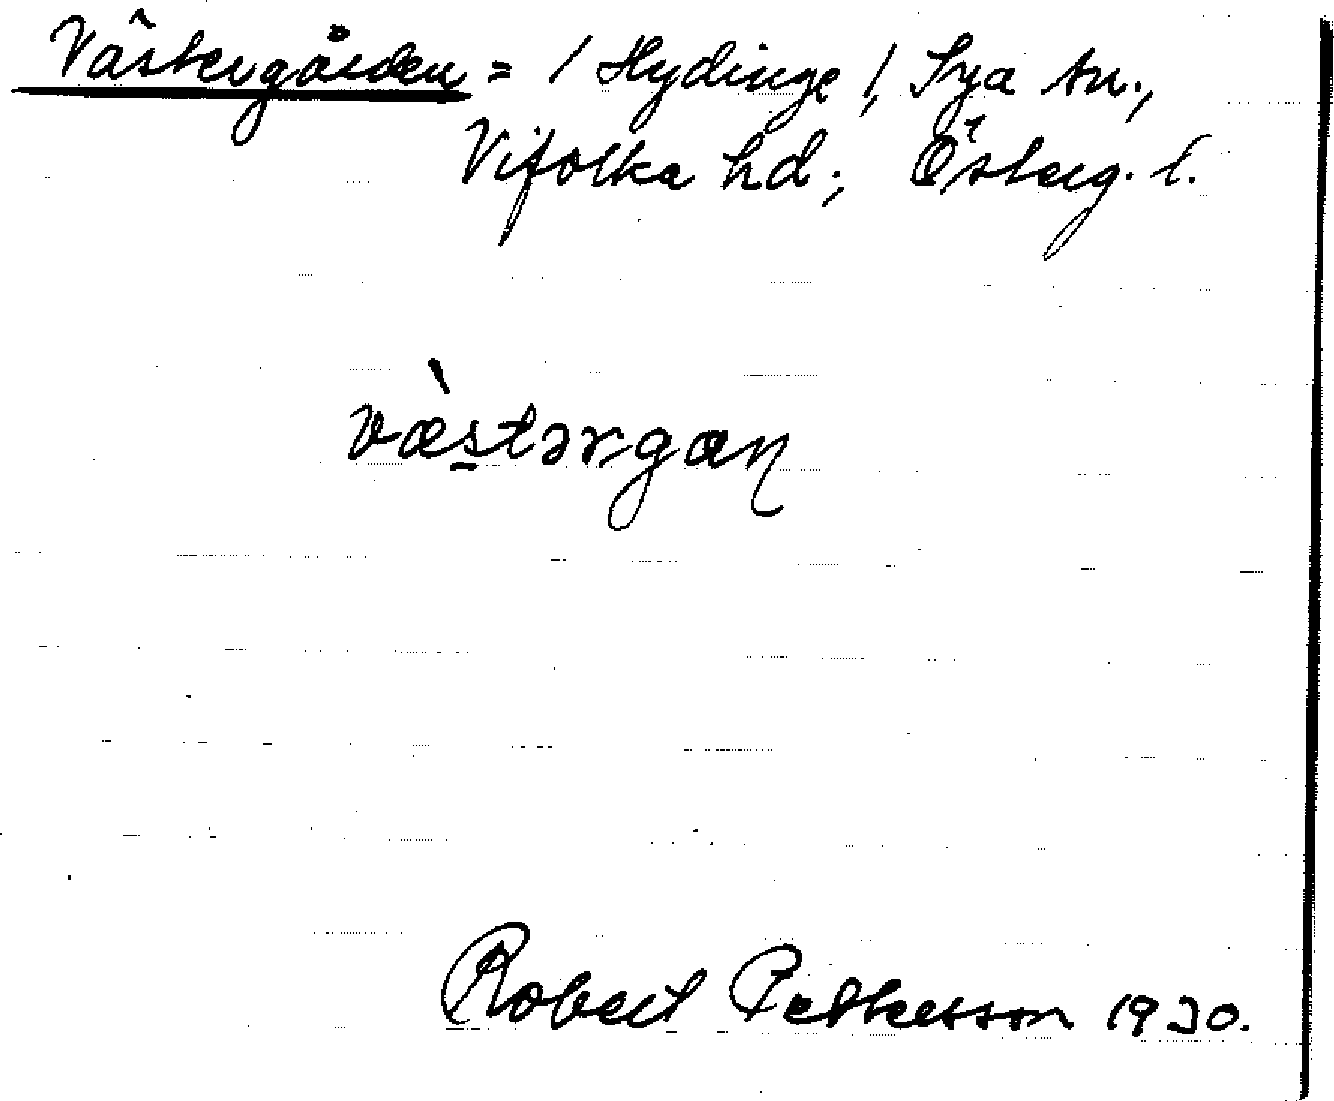 Västergården = / Hydinge /, Sya sn.,
Vifolka hd., Österg. l.
væ̀stərgan
Robert Petterson 1930.